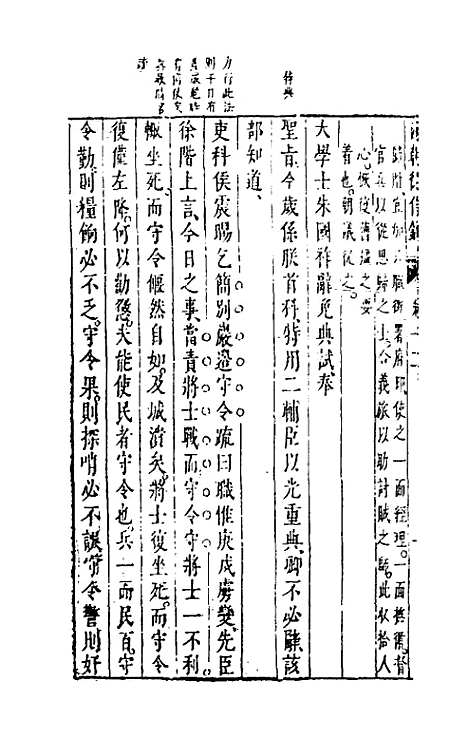 兩朝從信錄
職銜署府即使之一面經理一面撫循督
官兵以從思歸之士合義旅以助討賊之師此收拾人
心恢復舊疆之要
着也朝議從之
大學士朱國祚辭免典試奉
特典
聖旨今歲係朕首科特用二輔臣以光重典卿不必辭該
部知道
吏科侯震暘乞簡別嚴邊守令疏曰職惟庚戌虜變先臣
力行此法
則平日有
徐階上言今日之事當責將士戰而守令守將士一不利
輒坐死而守令偃然自如及城潰矣將士復坐死而守令
復僅左降何以勸懲夫能使民者守令也兵一而民百守
令勤則糧餉必不乏守令果則探哨必不誤守令警則奸